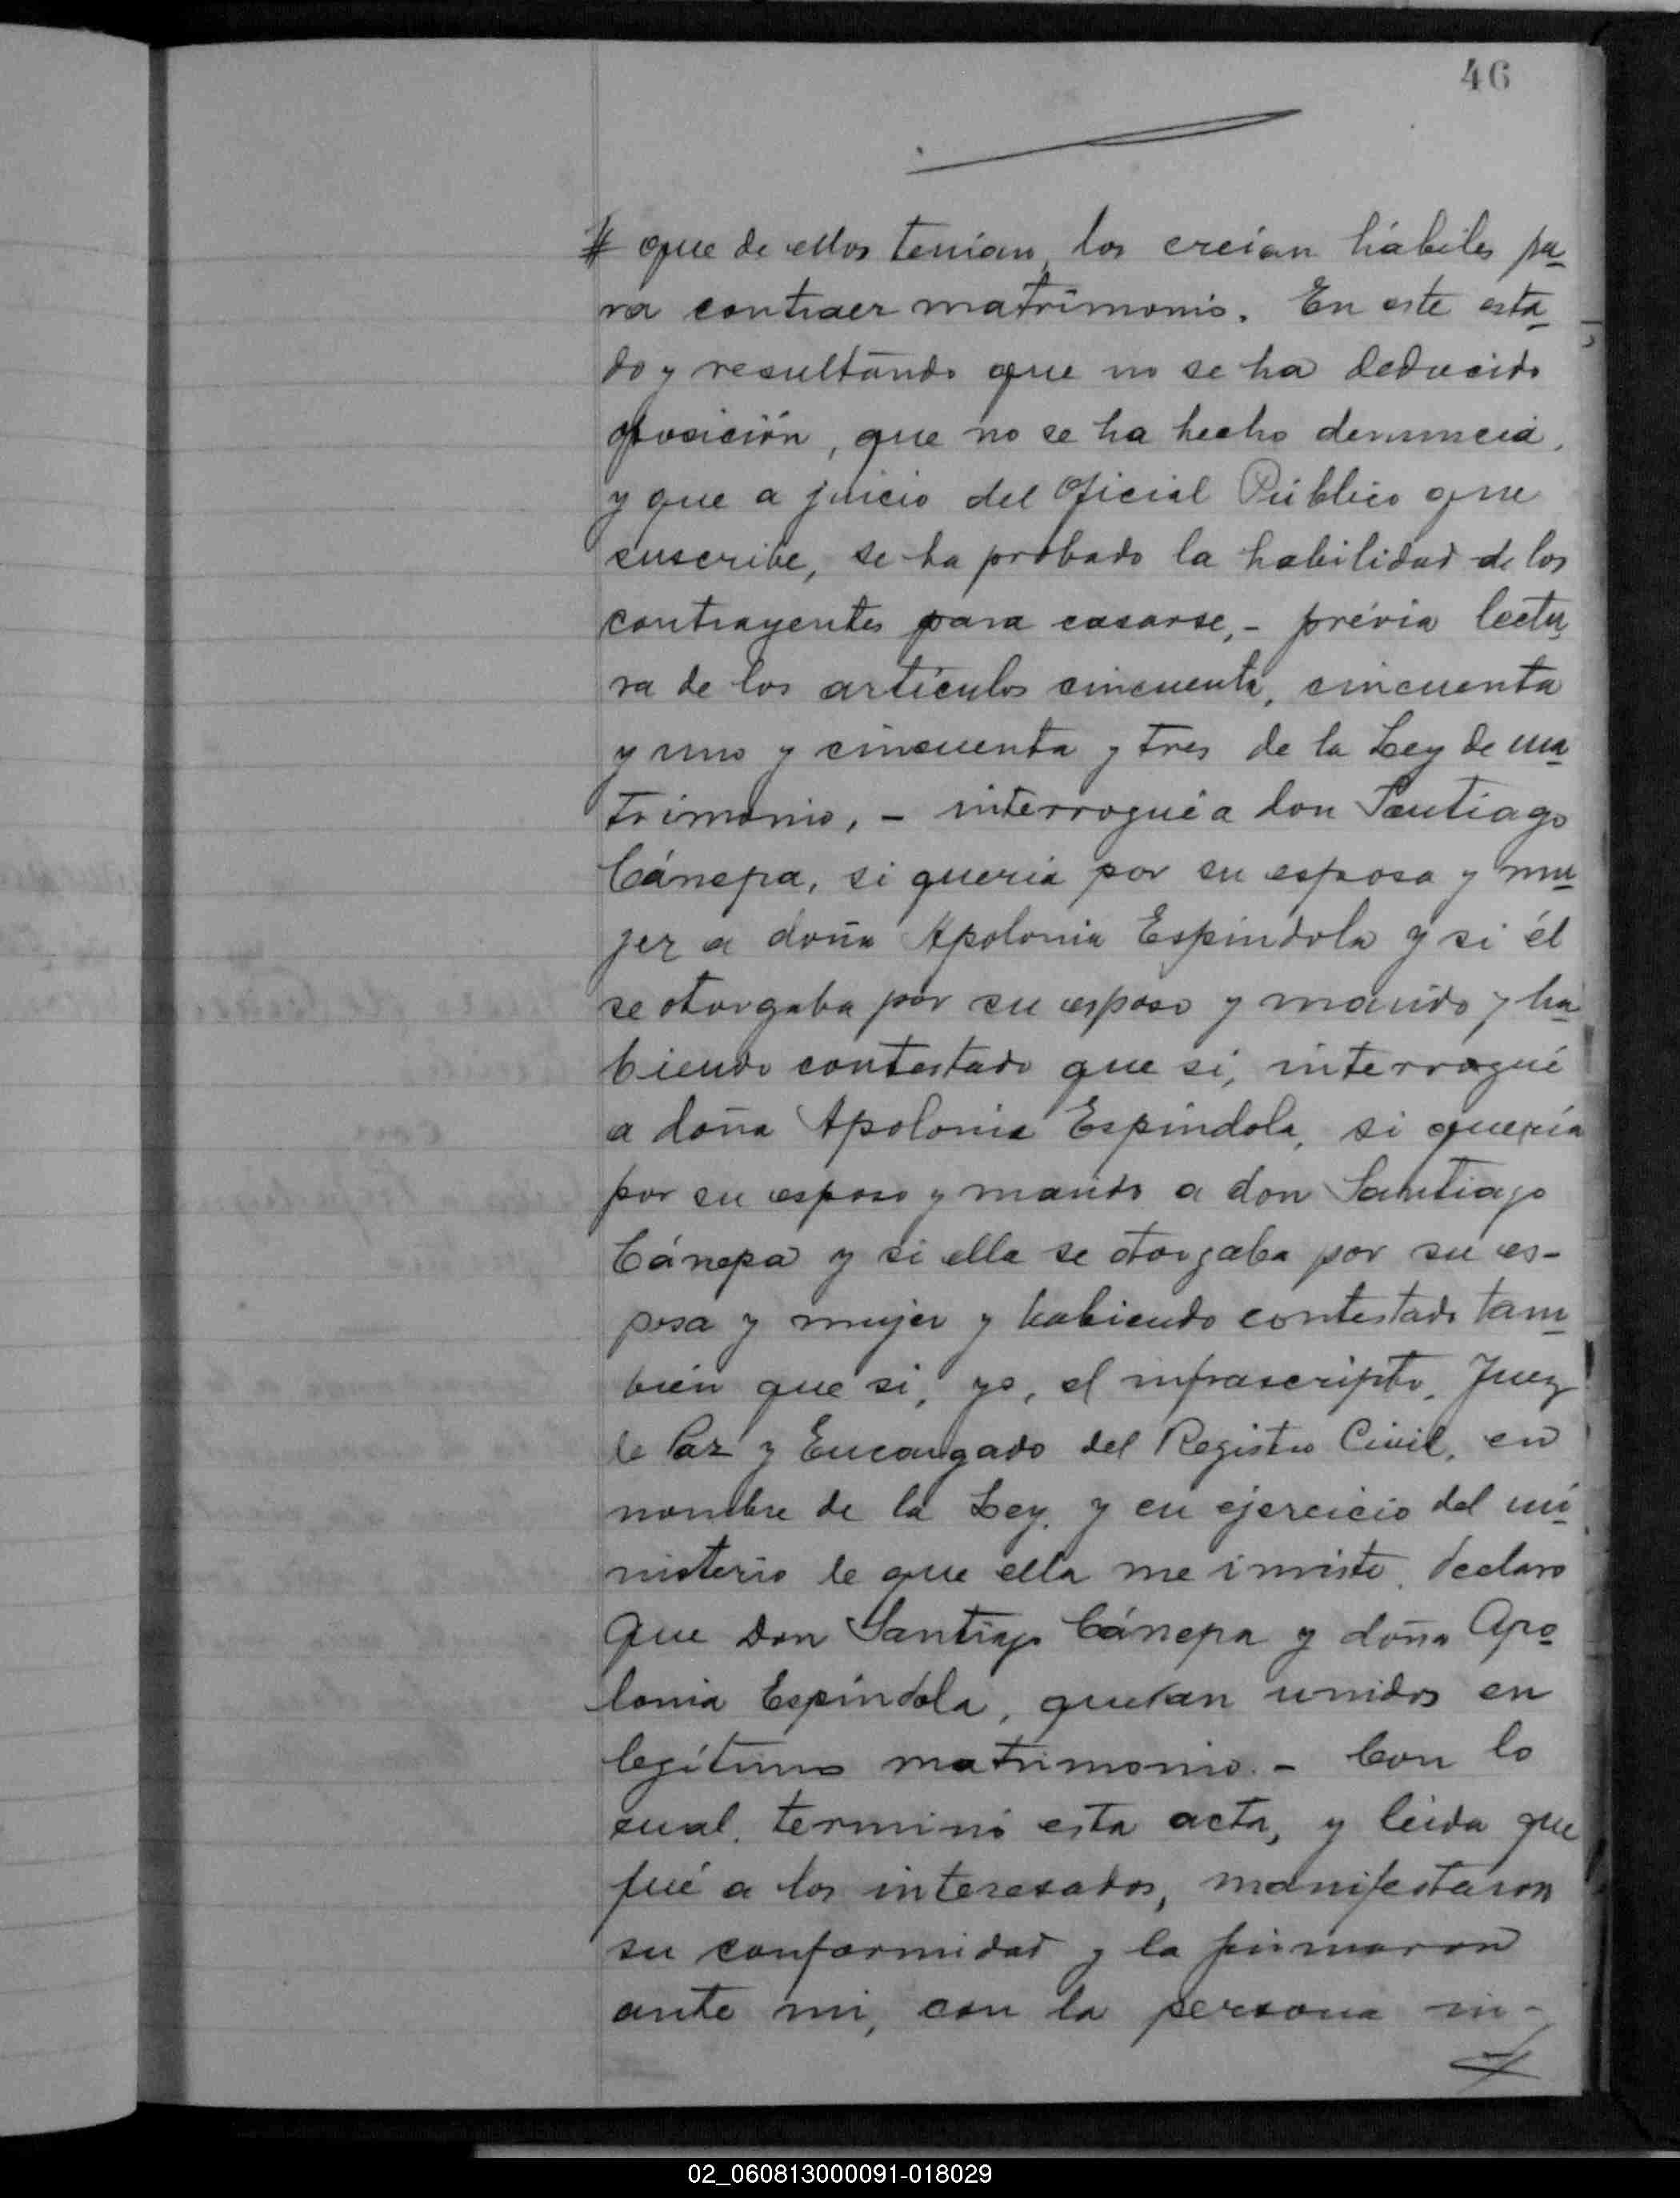 46
# que de ellos tenían, los creían hábiles pa-
ra contraer matrimonio. En este esta-
do y resultando que no se ha deducido
oposición, que no se ha hecho denuncia,
y que a juicio del Oficial Público que
suscribe, se ha probado la habilidad de los
contrayentes para casarse,- prévia lectu-
ra de los artículos cincuenta, cincuenta
y uno y cincuenta y tres de la Ley de ma-
trimonio, - interrogué a don Santiago
Cánepa, si quería por su esposa y mu-
jer a doña Apolonia Espíndola y si él
se otorgaba por su esposo y marido y ha-
biendo contestado que si, interrogué
a doña Apolonia Espíndola, si quería
por su esposo y marido a don Santiago
Cánepa y si ella se otorgaba por su es-
posa y mujer y habiendo contestado tam-
bién que si, yo, el infrascripto, Juez
de Paz y Encargado del Registro Civil, en
nombre de la Ley, y en ejercicio del mi-
nisterio de que ella me inviste, declaro
que don Santiago Cánepa y doña Apo-
lonia Espíndola, quedan unidos en
legítimo matrimonio. - Con lo
cual, terminó esta acta, y leída que
fué a los interesados, manifestaron
su conformidad y la firmaron
ante mi, con la persona in-
#
02_060813000091-018029